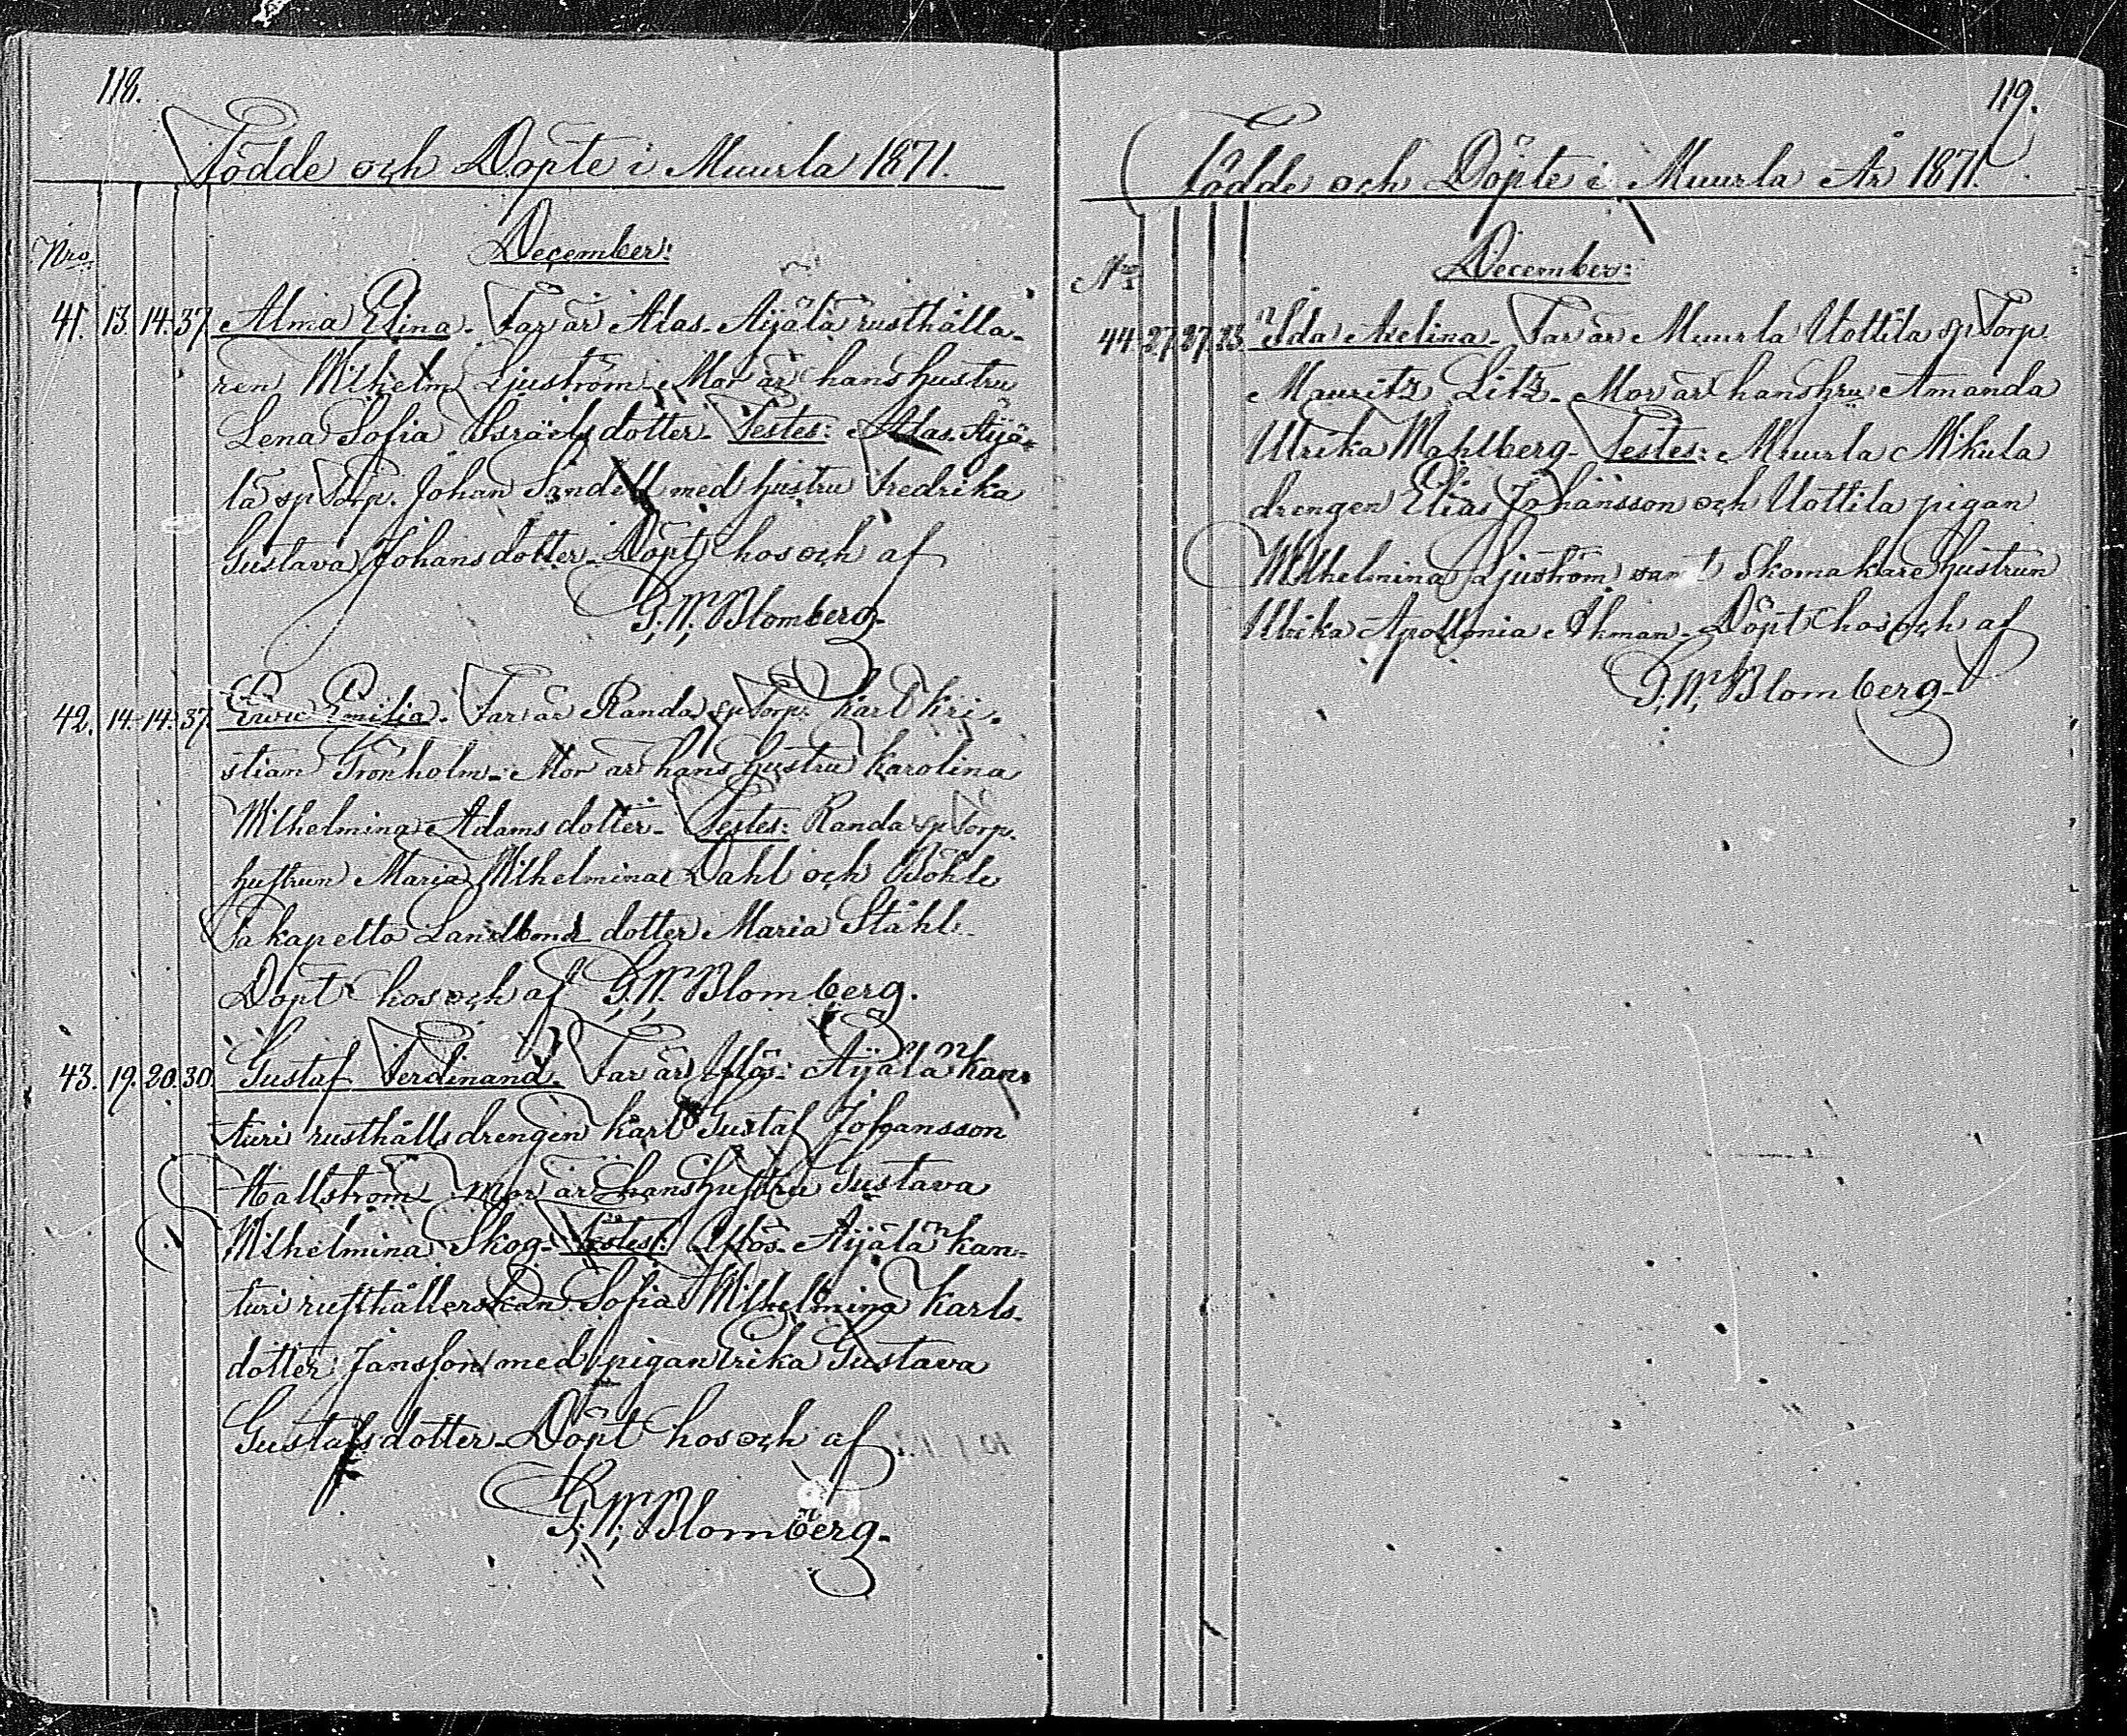 118.
Födde och Döpte i Muurla 1871.
December:
Nro.
41. 13. 14. 37. Alma Elina. Far är Alas-Äijälä rusthålla-
ren Wilhelm Ljuström. Mor är hans hustru
Lena Sofia Israelsdotter. Testes: Alas-Äijä-
lä sp Torp. Johan Sandell med hustru Fredrika
Gustava Johansdotter. Döpt hos och af
G. W. Blomberg.
42. 14. 14. 37. Emilia. Far är Randa sp Torp. Karl Kri-
stian Grönholm. Mor är hans hustru Karolina
Wilhelmina Adamsdotter. Testes: Randa sp Torp.
hustrun Maria Wilhelmina Dahl och Böhle
Takapelto Landbond dotter Maria Ståhl.
Döpt hos och af G. W. Blomberg.
43. 19. 20. 30. Gustaf Ferdinand. Far är Äijälä Kan-
turi rusthållsdrengen Karl Gustaf Johansson
Hallström. Mor är hans hustru Gustava
Wilhelmina Skog. Testes: Äijälä Kan-
turi rusthållerskan Sofia Wilhelmina Karls-
dotter Jansson med pigan Erika Gustava
Gustafsdotter. Döpt hos och af
G. W. Blomberg.
119.
Födde och Döpte i Muurla År 1871.
December:
Nro
44. 27. 27. 23. Ida Avelina. Far är Muurla Uottila sp Torp.
Mauritz Litz. Mor är hans hru Amanda
Ulrika Wahlberg. Testes: Muurla Mikula
drengen Elias Johansson och Uottila pigan
Wilhelmina Ljuström samt Skomakare hustrun
Ulrika Apollonia Åhman. Döpt hos och af
G. W. Blomberg.